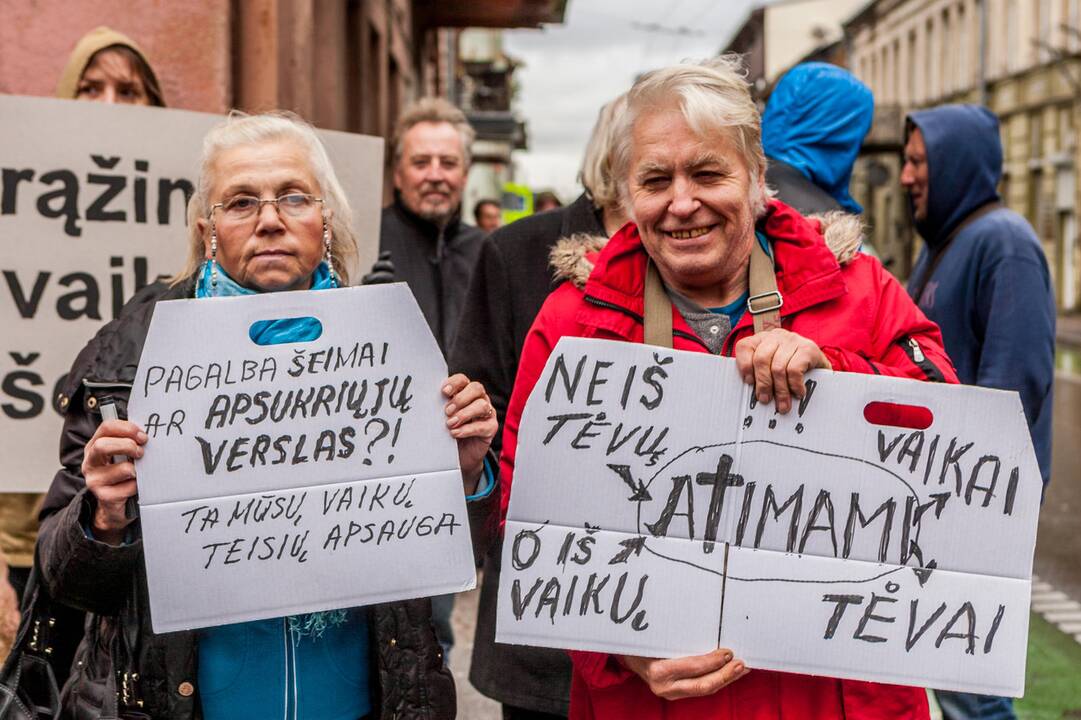 rąžin
vaik
še
PAGALBA ŠEIMAI
AR APSUKRIŲJŲ
VERSLAS?!
TA MŪSŲ VAIKŲ
TEISIŲ APSAUGA
NE IŠ
TĖVŲ
!!!
VAIKAI
ATIMAMI
O IŠ
VAIKŲ
TĖVAI